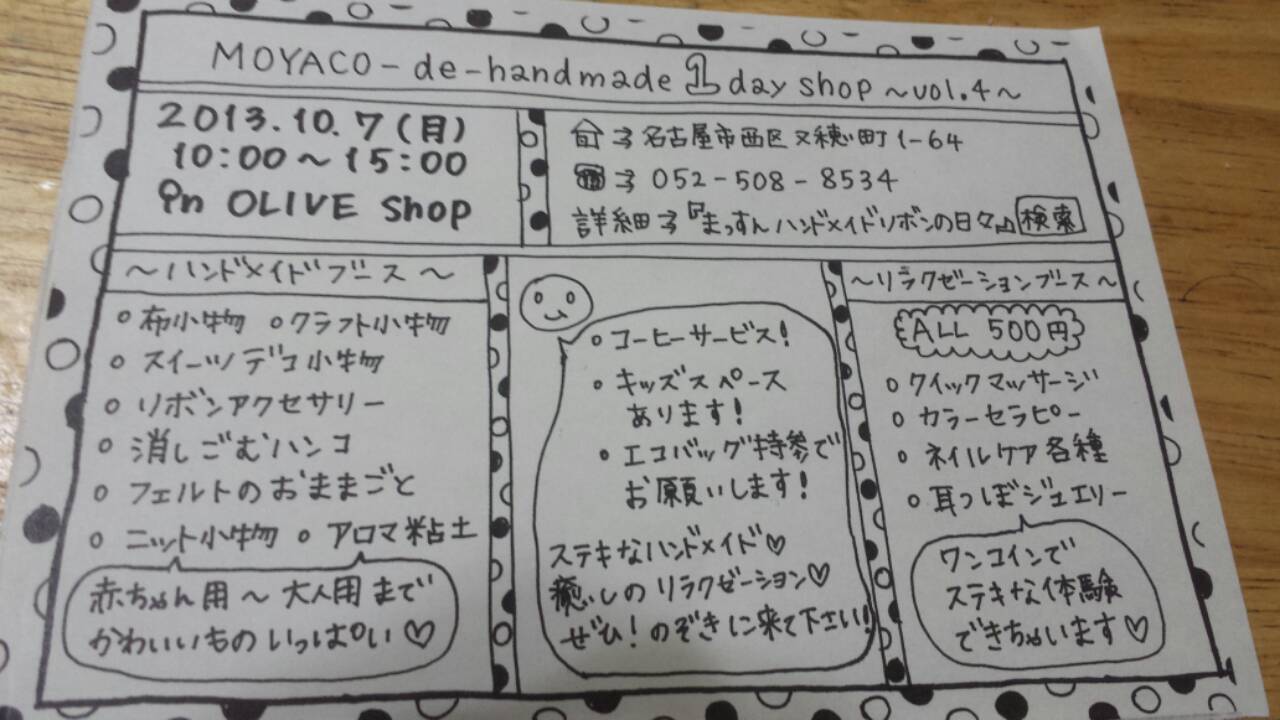 MOYACO-de-handmade 1 day shop ~vol.4~
2013.10.7(月)
10:00~15:00
in OLIVE shop
名古屋市西区又穂町1-64
052-508-8534
詳細→『まっすんハンドメイドリボンの日々』検索
~ハンドメイドブース~
○布小物 ○クラフト小物
○スイーツデコ小物
○リボンアクセサリー
○消しごむハンコ
○フェルトのおままごと
○ニット小物 ○アロマ粘土
赤ちゃん用~大人用まで
かわいいものいっぱい♡
○コーヒーサービス!
○キッズスペース
あります!
○エコバッグ持参で
お願いします!
ステキなハンドメイド♡
癒しのリラクゼーション♡
ぜひ!のぞきに来て下さい!
~リラクゼーションブース~
ALL 500円
○クイックマッサージ
○カラーセラピー
○ネイルケア各種
○耳つぼジュエリー
ワンコインで
ステキな体験
できちゃいます♡